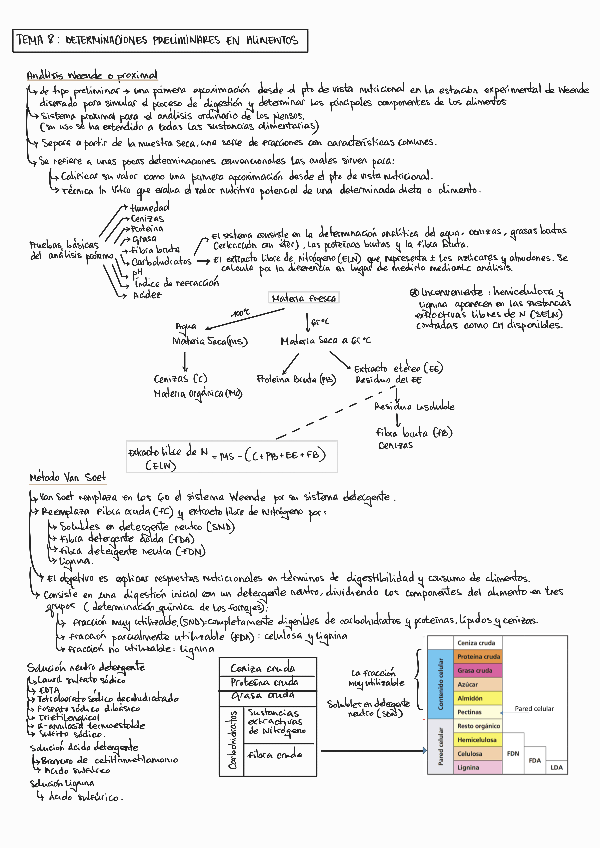 TEMA 8: DETERMINACIONES PRELIMINARES EN ALIMENTOS
Análisis Weende o proximal
↳ de tipo preliminar → una primera aproximación desde el pto de vista nutricional en la estación experimental de Weende
diseñado para simular el proceso de digestión y determinar los principales componentes de los alimentos
↳ Sistema proximal para el análisis ordinario de los piensos,
(su uso se ha extendido a todas las sustancias alimentarias)
↳ Separa a partir de la muestra seca, una serie de fracciones con características comunes.
↳ Se refiere a unas pocas determinaciones convencionales las cuales sirven para:
↳ Calificar su valor como una primera aproximación desde el pto de vista nutricional.
↳ Técnica In Vitro que evalua el valor nutritivo potencial de una determinada dieta o alimento.
Pruebas básicas
del análisis proximo
Humedad
Cenizas
Proteína
Grasa
Fibra bruta
Carbohidratos
pH
Índice de refracción
Acidez
El sistema consiste en la determinación analítica del agua, cenizas, grasas brutas
(extracción con éter), las proteínas brutas y la fibra bruta.
El extracto libre de nitrógeno (ELN) que representa ± los azúcares y almidones. Se
calcula por la diferencia en lugar de medirlo mediante análisis.
Materia Fresca
100ºC
65ºC
Agua
Materia Seca (MS)
Materia Seca a 65ºC
Cenizas (C)
Materia Orgánica (MO)
Proteína Bruta (PB)
Extracto etéreo (EE)
Residuo del EE
Residuo insoluble
Fibra bruta (FB)
Cenizas
⊛ Inconveniente: hemicelulosa y
lignina aparecen en las sustancias
extractivas libres de N (SELN)
contadas como CH disponibles.
Extracto libre de N
(ELN) = MS - (C + PB + EE + FB)
Método Van Soet
↳ Van Soet remplaza en los 60 el sistema Weende por su sistema detergente.
↳ Reemplaza Fibra cruda (FC) y extracto libre de Nitrógeno por:
↳ Solubles en detergente neutro (SND)
↳ Fibra detergente ácida (FDA)
↳ Fibra detergente neutra (FDN)
↳ Lignina.
↳ El objetivo es explicar respuestas nutricionales en términos de digestibilidad y consumo de alimentos.
↳ Consiste en una digestión inicial con un detergente neutro, dividiendo los componentes del alimento en tres
grupos (determinación química de los forrajes):
↳ Fracción muy utilizable, (SND): completamente digeribles de carbohidratos y proteínas, lípidos y cenizas.
↳ Fracción parcialmente utilizable (FDN): celulosa y lignina
↳ Fracción no utilizable: Lignina
Solución neutro detergente
↳ Lauril sulfato sódico
↳ EDTA
↳ Tetraborato sódico decahidratado
↳ Fosfato sódico dibásico
↳ Trietilenglicol
↳ α-amilasa termoestable
↳ Sulfito sódico.
Solución Acido detergente
↳ Bromuro de cetiltrimetilamonio
↳ Acido sulfúrico
Solución Lignina
↳ Acido sulfúrico.
Ceniza cruda
Proteína cruda
Grasa cruda
Carbohidratos
Sustancias
extractivas
de Nitrógeno
Fibra cruda
La fracción
muy utilizable
Solubles en detergente
neutro (SND)
Contenido celular
Pared celular
Ceniza cruda
Proteína cruda
Grasa cruda
Azúcar
Almidón
Pectinas
Resto orgánico
Hemicelulosa
Celulosa
Lignina
Pared celular
FDN
FDA
LDA